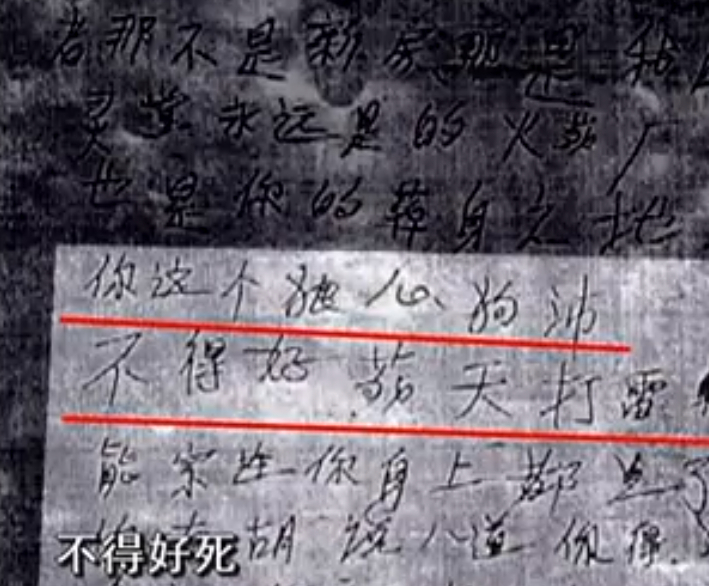 者那不是新房那是我
灵堂永远是的火葬厂
也是你的葬身之地
你这个狼心狗沛
不得好葬天打雷
能家连你身上都是了
胡说八道你得
不得好死